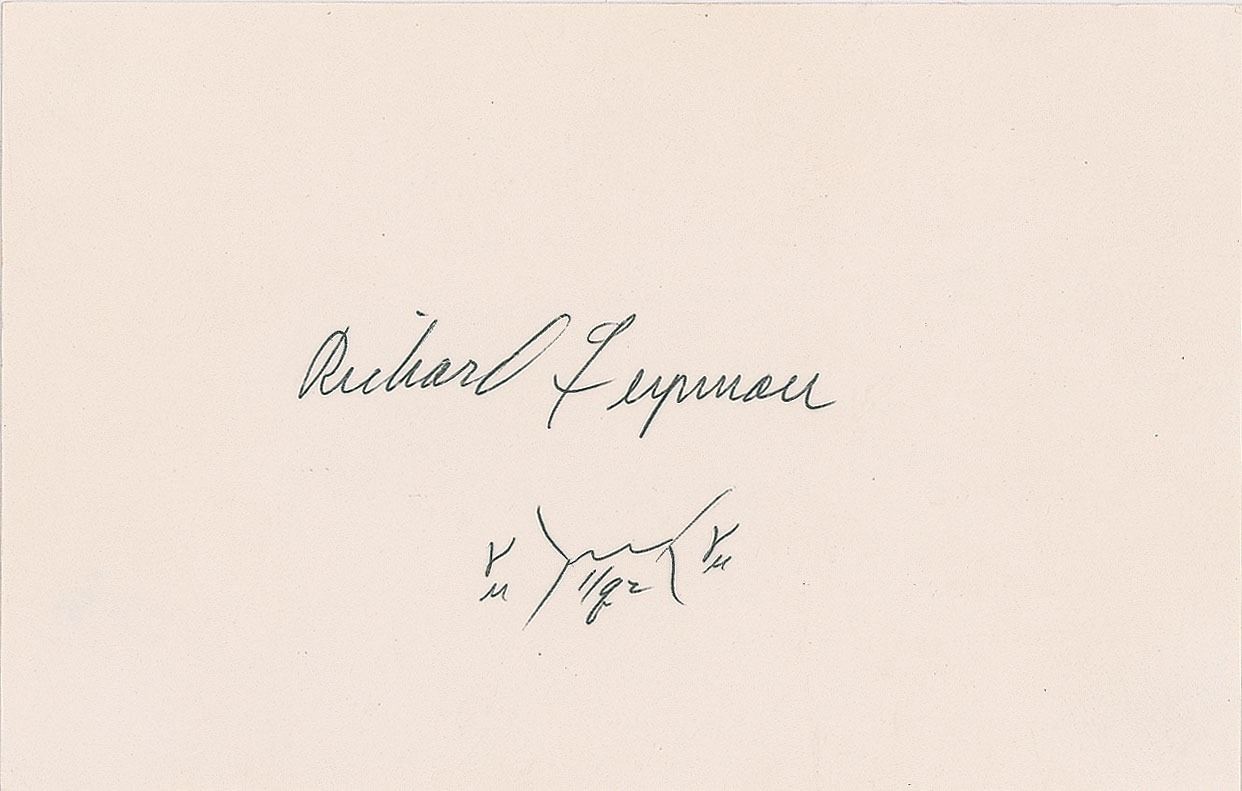 Richard Feynman
γμ 1/q² γμ